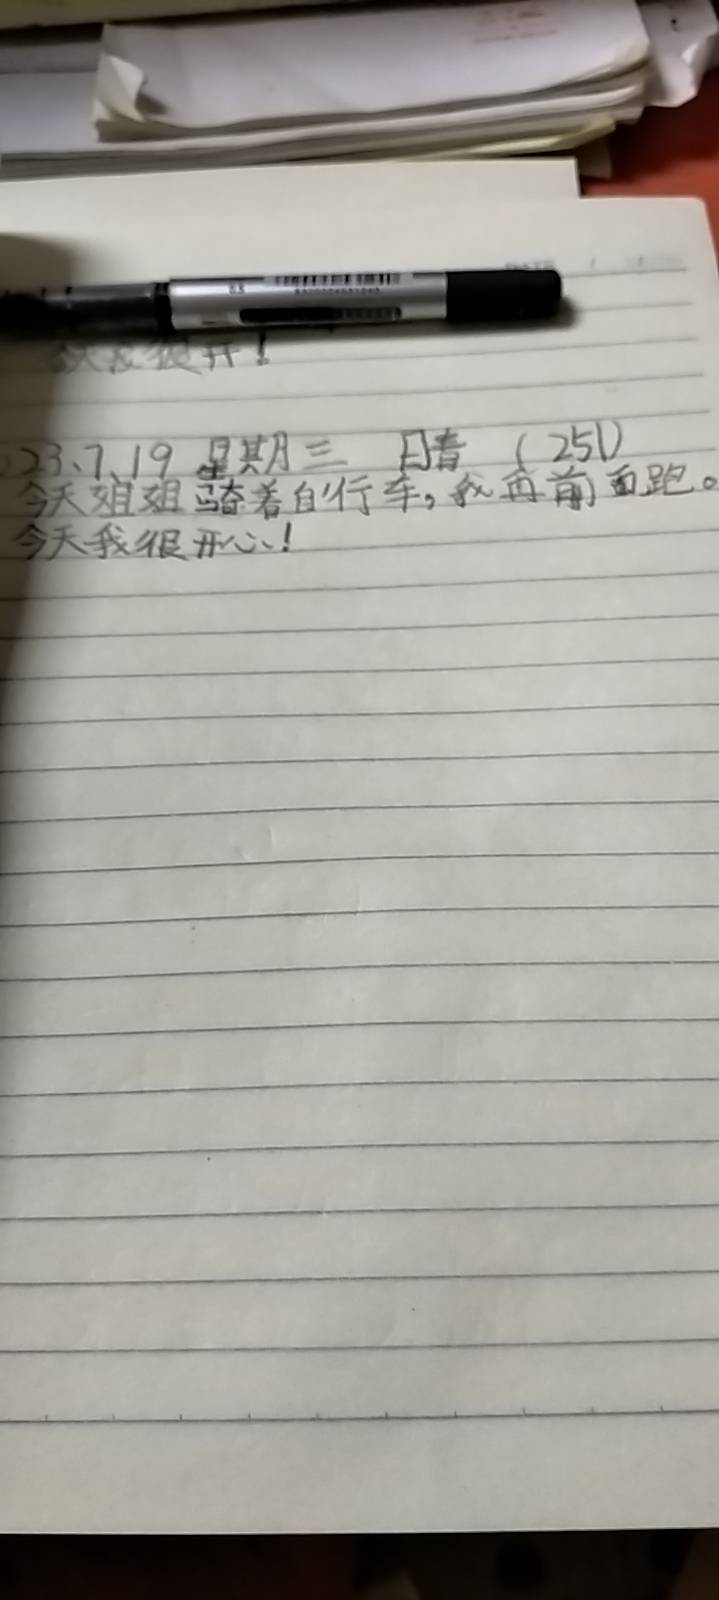 今天我很开!
23.7.19 星期三 晴 (251)
今天姐姐骑着自行车,我再前面跑。
今天我很开心!